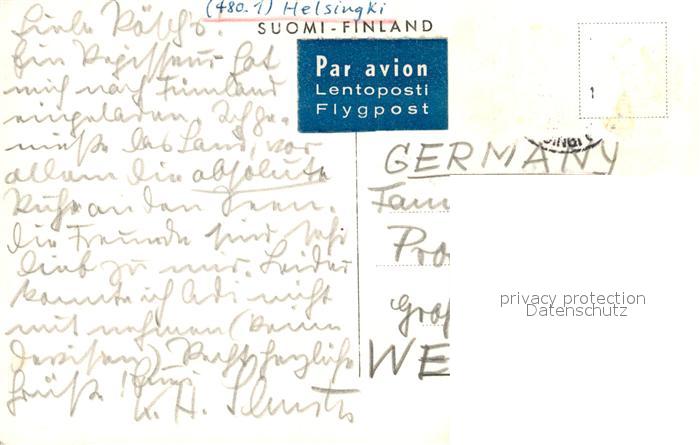 (480.1) Helsingki
SUOMI-FINLAND
Par avion
Lentoposti
Flygpost
Liebe
Ein Regisseur hat
mich nach Finnland
eingeladen. Ich ge-
nieße das Land, vor
allem die absolute
Ruhe an den Seen.
Die Freunde sind sehr
lieb zu mir. Leider
konnte ich nicht
mit nehmen (keine
Devisen). Recht herzliche
Grüße!
GERMANY
Fam
Pro
Groß
WE
privacy protection
Datenschutz